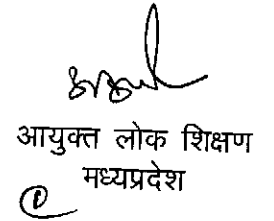 आयुक्त लोक शिक्षण
मध्यप्रदेश